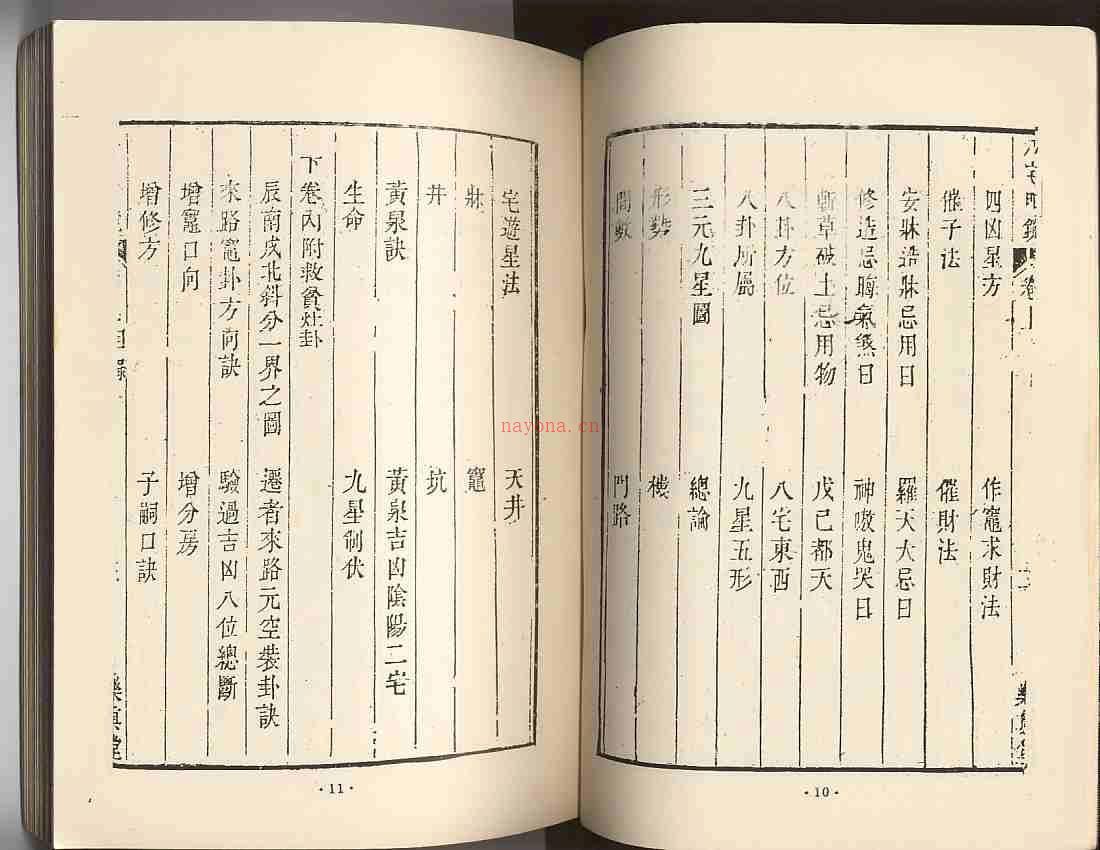 八宅明鏡 卷上
四凶星方 作竈求財法
催子法 催財法
安牀造牀忌用日 羅天大忌日
修造忌晦氣煞日 神嗷鬼哭日
斬草破土忌用物 戊己都天
八卦方位 八宅東西
八卦所屬 九星五形
三元九星圖 總論
形勢 穢
間數 門路
樂真堂
·10·
宅遊星法 天井
牀 竈
井 坑
黃泉訣 黃泉吉凶陰陽二宅
生命 九星制伏
下卷內附救貧灶卦
辰南戌北斜分一界之圖 遷者來路元空裝卦訣
來路竈卦方向訣 驗過吉凶八位總斷
增竈口向 增分房
增修方 子嗣口訣
目錄
樂真堂
·11·
nayona.cn